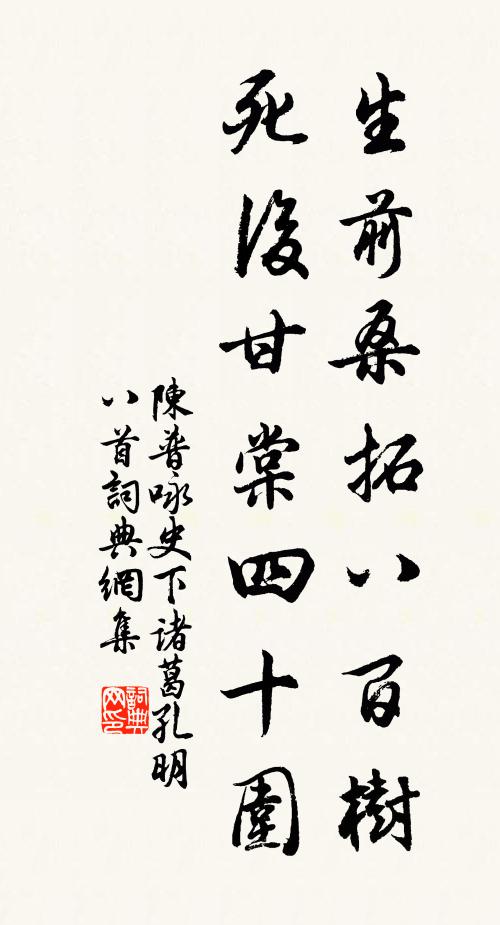 生前桑拓八百樹
死後甘棠四十圍
陳普咏史下诸葛孔明
八首詞典網集
詞典網印